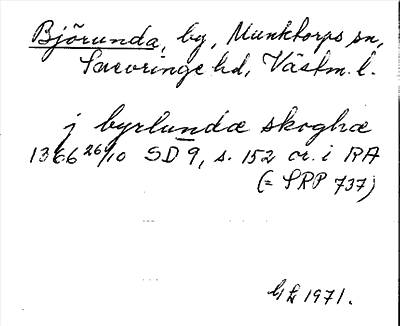 Björunda, by, Munktorps sn,
Snevringe hd, Västm. l.
j byrlundæ skoghæ
1366 26/10 SD 9, s. 152 or. i RA
(= SRP 737)
1971.